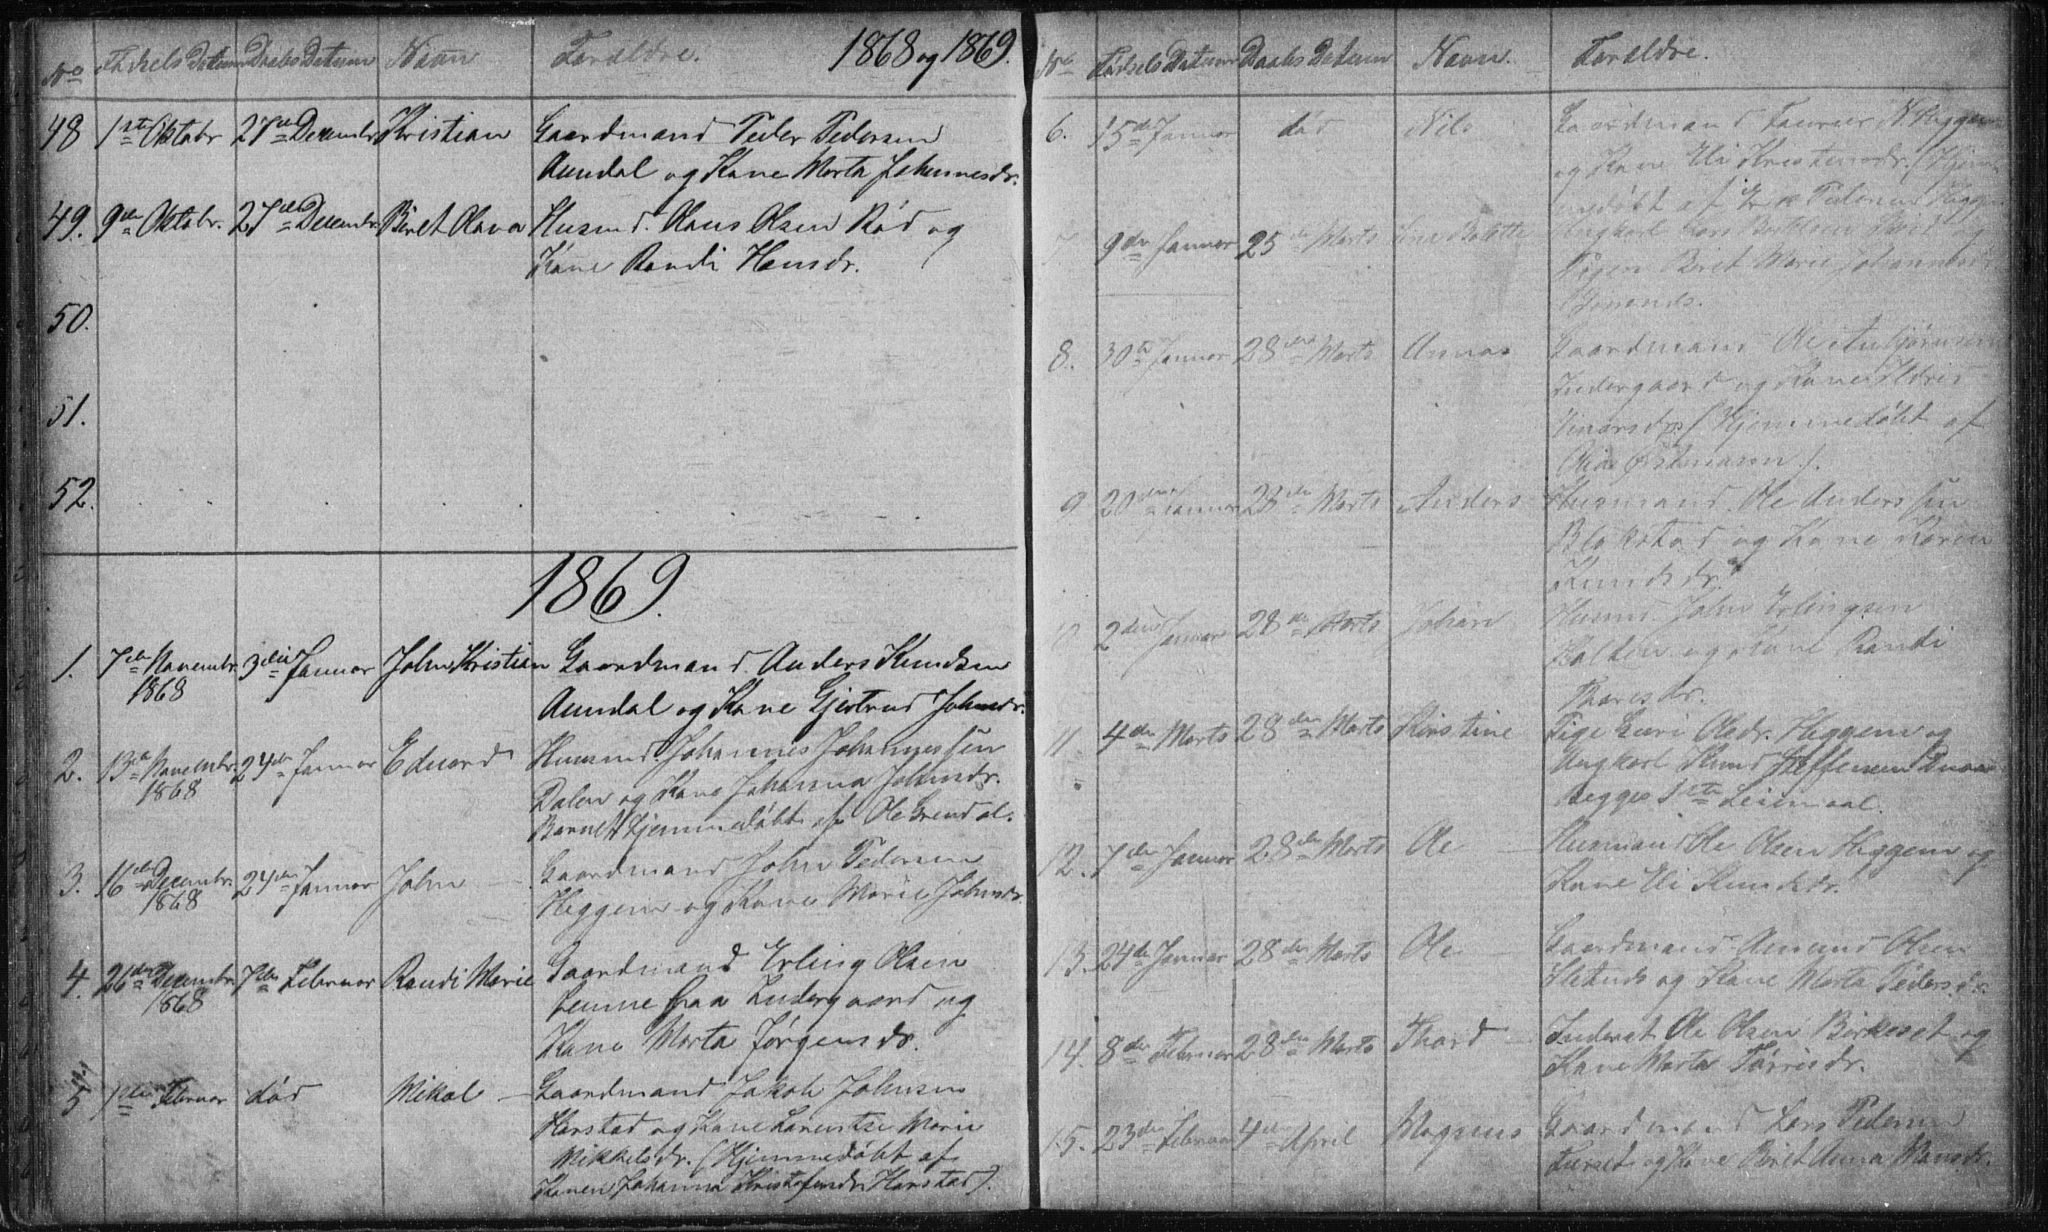 No Fødsels Datum Daabs Datum Navn Forældre. 1868 og 1869.
48 1ste Oktobr 27de Decembr Kristian Gaardmand Peder Pedersen
Aundal og Kone Marta Johannesdr.
49. 9de Oktobr. 27de Decembr. Beret Olava Husmd. Claus Olsen Rød og
Kone Randi Hansdr.
50.
51.
52.
1869.
1. 7de Novembr. 3die Januar John Kristian Gaardmand Anders Knudsen
1868 Aundal og Kone Gjertrud Johnsdr.
2. 13de Novembr. 24de Januar Edvard Husmd. Johannes Johannessen
1868 Dalen og Kone Johanna Johnsdr.
Barnet Hjemmedøbt af Ole Grendal.
3. 16de Decembr. 24de Januar John Gaardmand John Pedersen
1868 Heggem og Kone Marie Johnsdr.
4. 26de Decembr. 7de Februar Randi Marie Gaardmand Erling Olsen
1868 fra Indergaard og
Kone Marta Jørgensdr.
5 1ste Februar død Mikal Gaardmand Jakob Johnsen
Harstad og Kone Larentse Marie
Mikkelsdr. (Hjemmedøbt af
Konen Johanna Kristofersdr Harstad).
No Fødsels Datum Daabs Datum Navn. Forældre.
6. 15de Januar død Nils Gaardmand N. Heggem
og Kone Eli Kristensdr. (Hjem-
medøbt af Erik Pedersen Heggem
7 9de Januar 25de Marts Bolette Ungkarl Lars og
Pigen Beret Marie Johannesdr
8. 30te Januar 28de Marts Annas Gaardmand Ole
Indergaard og Kone Ildrie
Einarsdr. (Hjemmedøbt af
Østmann).
9 20de Januar 28de Marts Anders Husmand Ole Anderssen
Blokstad og Kone Karen
Knudsdr.
10 2den Januar 28de Marts Johan Husmd. John Erlingsen
og Kone Randi
Thoresdr.
11. 4de Marts 28de Marts Kirstine Pige Guri Olsdr. Heggem og
Ungkarl Knud Steffensen
Begges 1ste Leiermaal.
12. 7de Januar 28de Marts Ole Husmand Ole Olsen Heggem og
Kone Eli Knudsdr.
13. 24de Januar 28de Marts Ole Gaardmand Amund Olsen
og Kone Marta Pedersdr.
14. 8de Februar 28de Marts Thard Inderst Ole Olsen Birkeset og
Kone Marta Tørrisdr.
15. 23de Februar 4de April Magnus Gaardmand Lars Pedersen
Furset og Kone Beret Anna Hansdr.